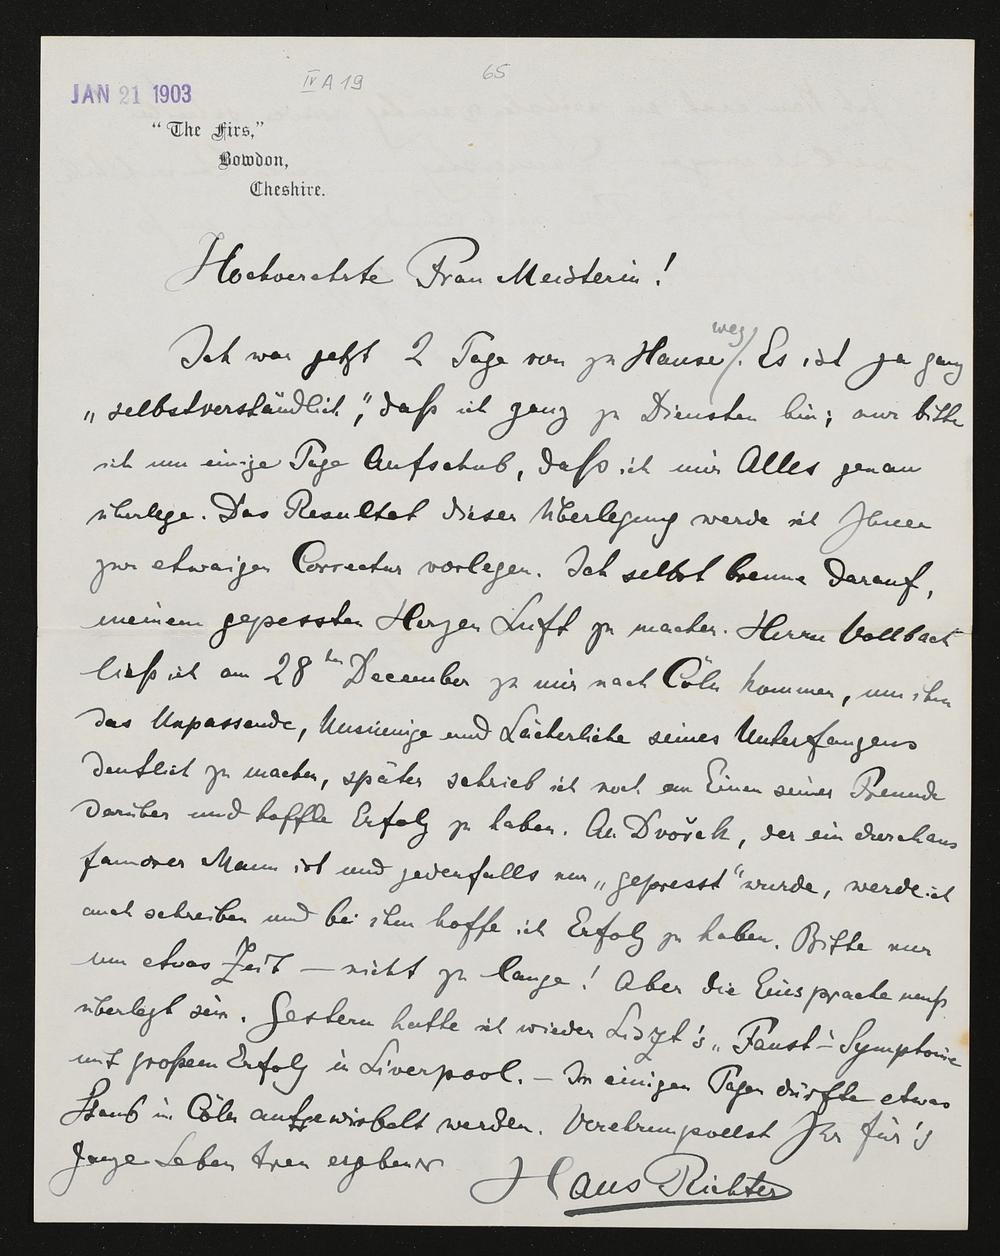 IV A 19
65
JAN 21 1903
"The Firs,"
Bowdon,
Cheshire.
Hochverehrte Frau Meisterin!
weg
Ich war jetzt 2 Tage von zu Hause /. Es ist ja ganz
„selbstverständlich", daß ich ganz zu Diensten bin; nur bitte
ich um einige Tage Aufschub, daß ich mir Alles genau
überlege. Das Resultat dieser Überlegung werde ich Ihnen
zur etwaigen Correctur vorlegen. Ich selbst brenne darauf,
meinem gepressten Herzen Luft zu machen. Herrn Vollbach
ließ ich am 28ten December zu mir nach Cöln kommen, um ihm
das Unpassende, Unsinnige und Lächerliche seines Unterfangens
deutlich zu machen, später schrieb ich noch an Einen seiner Freunde
darüber und hoffte Erfolg zu haben. An Dvořák, der ein durchaus
famoser Mann ist und jedenfalls nur „gepresst" wurde, werde ich
auch schreiben und bei ihm hoffe ich Erfolg zu haben. Bitte nur
um etwas Zeit — nicht zu lange! Aber die Einsprache muß
überlegt sein. Gestern hatte ich wieder Liszt's „Faust"-Symphonie
mit großem Erfolg in Liverpool. — In einigen Tagen dürfte etwas
Staub in Cöln aufgewirbelt werden. Verehrungsvollst Ihr für's
ganze Leben treu ergebener
Hans Richter